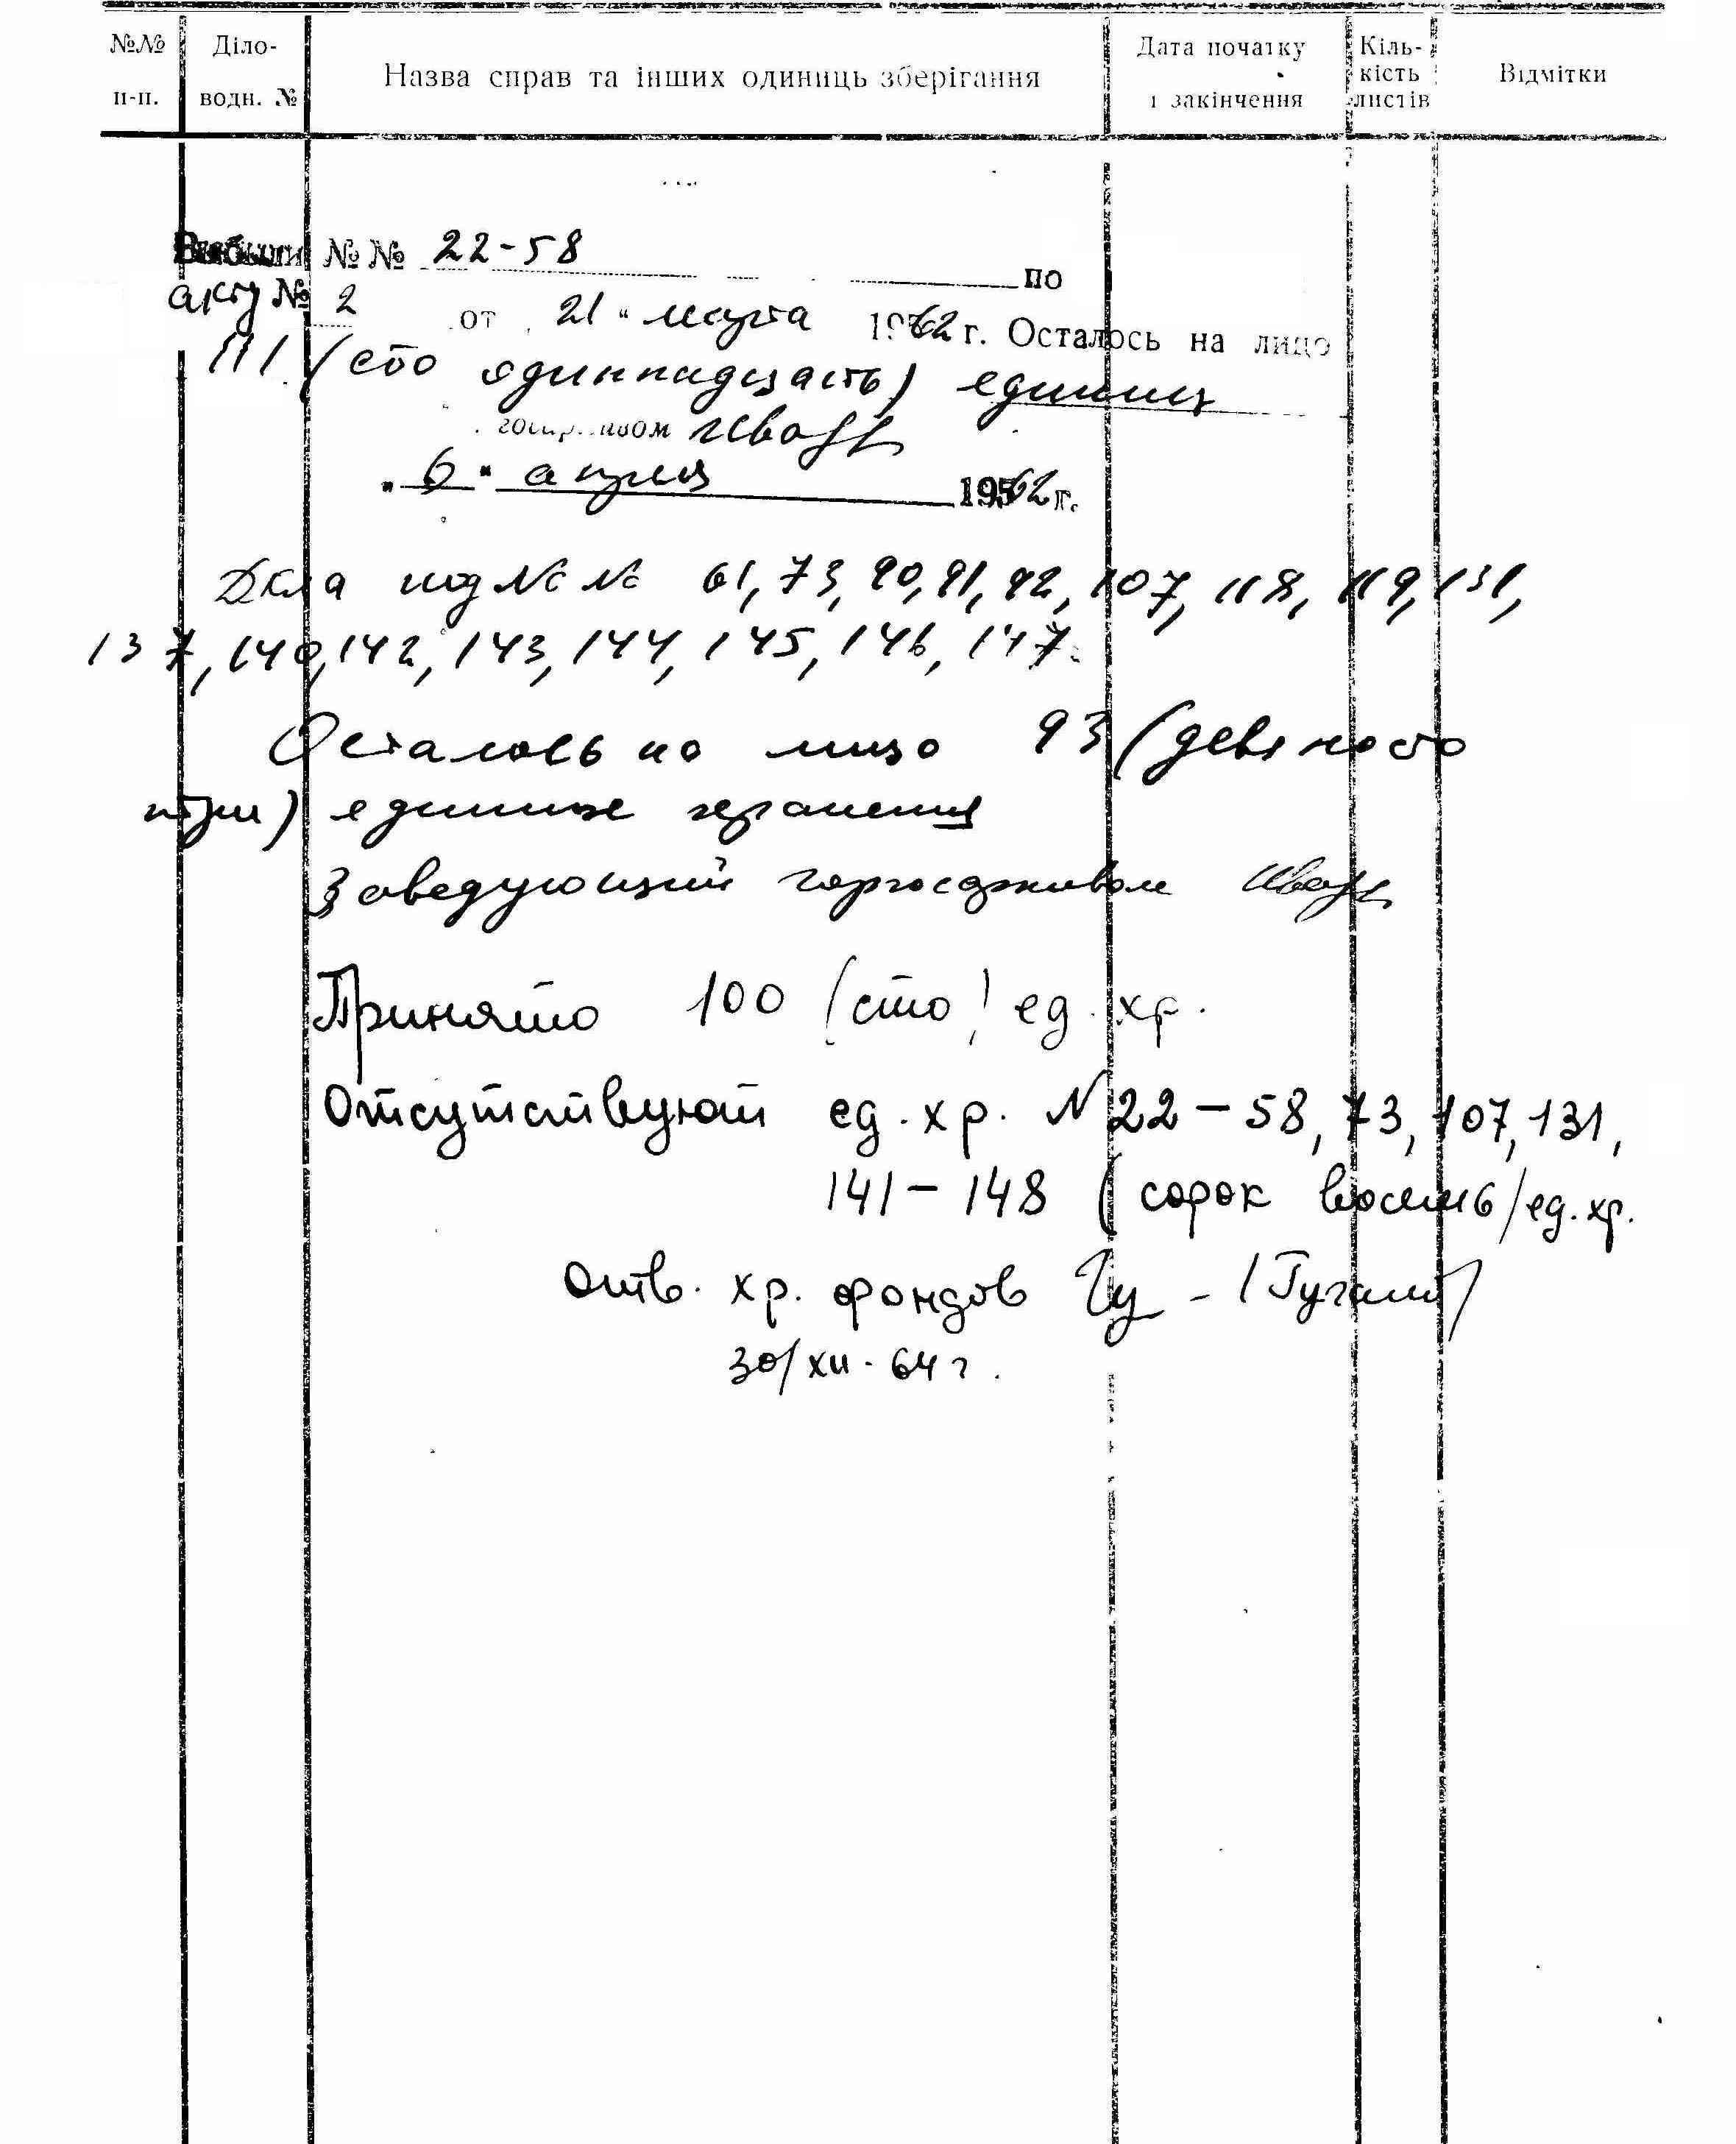 №№ п-п.
Діло-водн. №
Назва справ та інших одиниць зберігання
Дата початку і закінчення
Кіль-кість листів
Відмітки
Выбыли №№ 22-58 по
акту № 2 от 21 " марта 1962 г. Осталось на лицо
111 (сто одиннадцать) единиц
госархивом
" 6 " апреля 1962 г.
Дела под №№ 61, 73, 90, 91, 92, 107, 118, 119, 131,
137, 140, 142, 143, 144, 145, 146, 147.
Осталось на лицо 93 (девяносто
три) единицы хранения
Заведующий горгосархивом
Принято 100 (сто) ед. хр.
Отсутствуют ед. хр. N 22-58, 73, 107, 131,
141-148 (сорок восемь) ед. хр.
Отв. хр. фондов
30/XII-64 г.